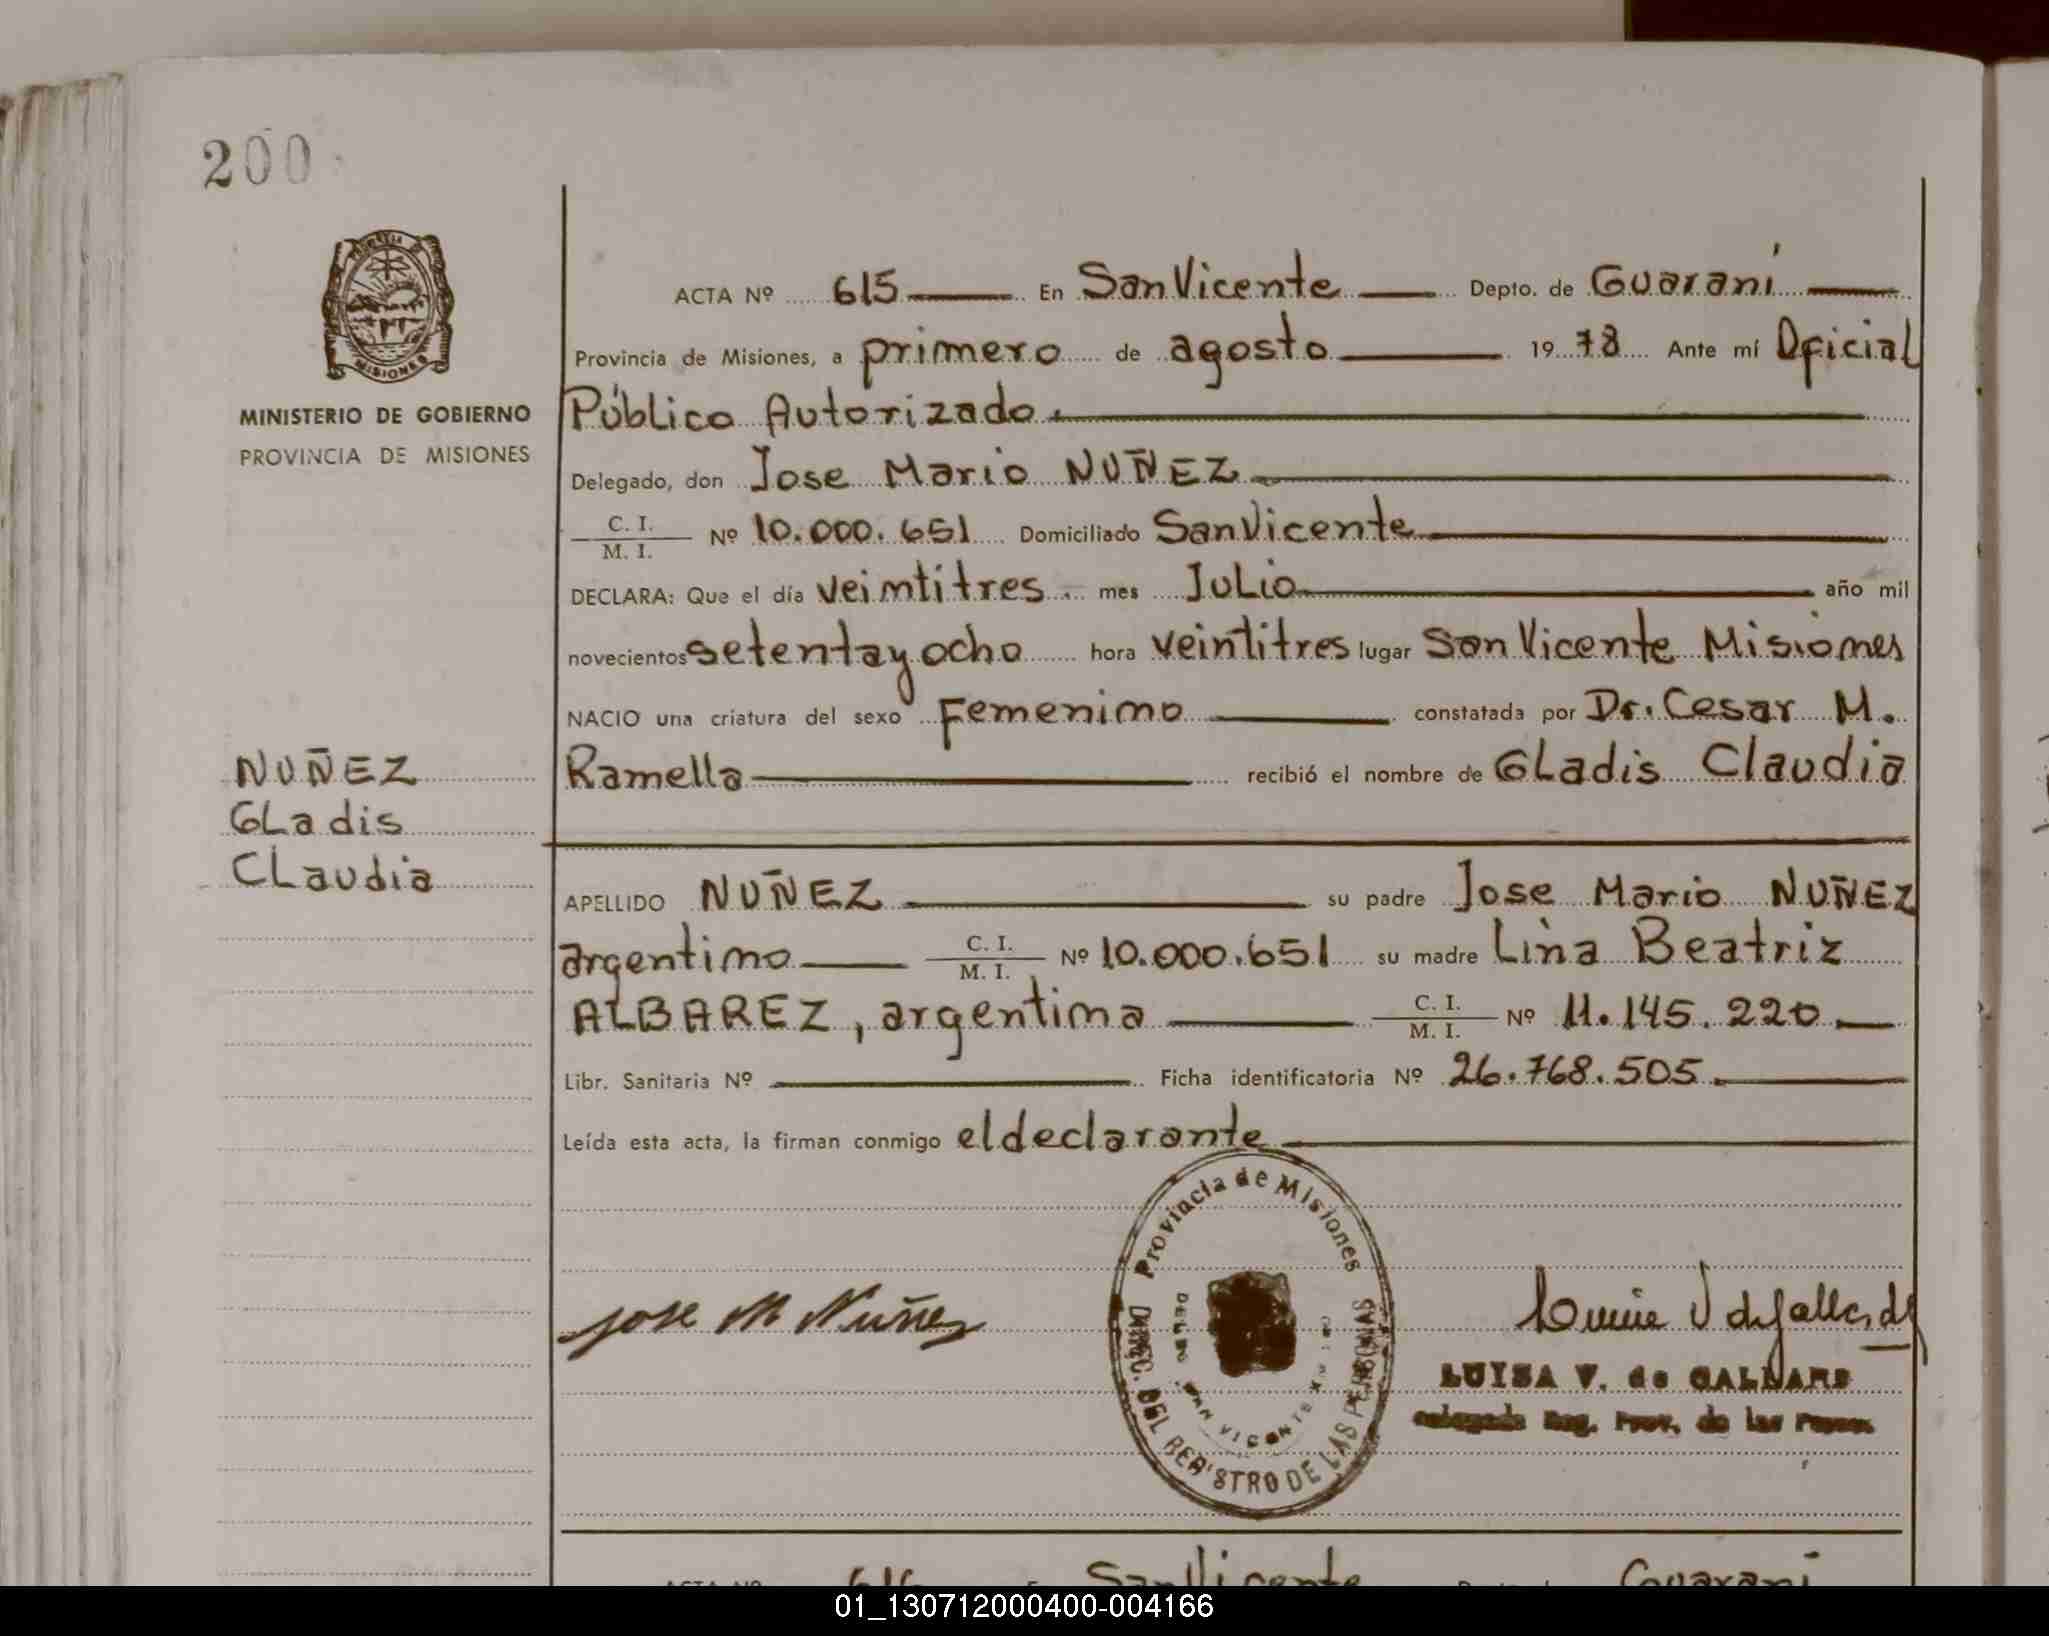 200
PROVINCIA DE
MISIONES
MINISTERIO DE GOBIERNO
PROVINCIA DE MISIONES
NUÑEZ
GLadis
CLaudia
ACTA Nº 615 En San Vicente Depto. de Guaraní
Provincia de Misiones, a primero de agosto 1978 Ante mí Oficial
Público Autorizado.
Delegado, don Jose Mario NUÑEZ
C. I. / M. I. Nº 10.000.651 Domiciliado San Vicente
DECLARA: Que el día veintitres mes JuLio año mil
novecientos setenta y ocho hora veintitres lugar San Vicente Misiones
NACIO una criatura del sexo Femenino constatada por Dr. Cesar M.
Ramella recibió el nombre de GLadis Claudia
APELLIDO NUÑEZ su padre Jose Mario NUÑEZ
argentino C. I. / M. I. Nº 10.000.651 su madre Lina Beatriz
ALBAREZ, argentina C. I. / M. I. Nº 11.145.220
Libr. Sanitaria Nº Ficha identificatoria Nº 26.768.505.
Leída esta acta, la firman conmigo el declarante
Provincia de Misiones
DIREC. DEL REGISTRO DE LAS PERSONAS
SAN VICENTE
Jose M Nuñez
LUISA V. de
Reg. Prov. de las
ACTA Nº 616 San Vicente Guaraní
01_130712000400-004166